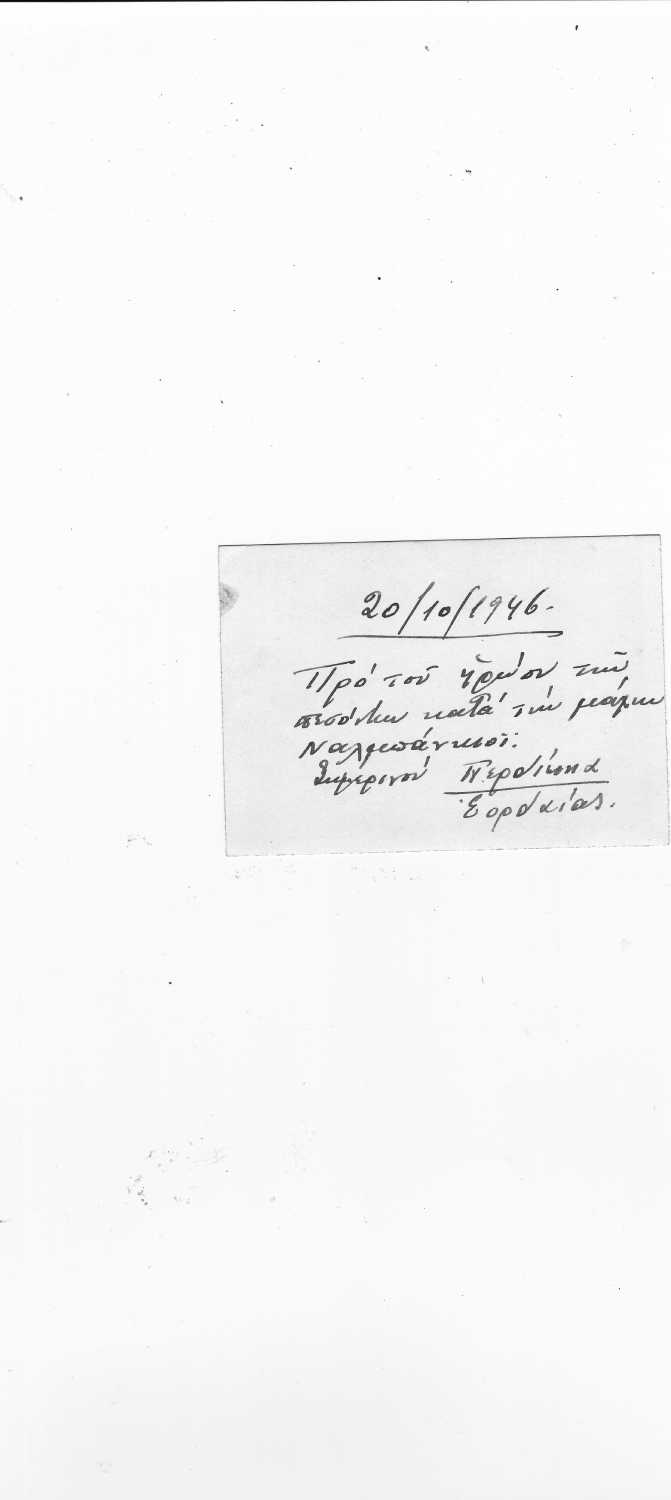 20/10/1946.
Πρό τοῦ ἡρώου τῶν
πεσόντων κατά τήν μάχην
Ναλμπάνκιοϊ.
Σημερινοῦ Περδίκκα
Ἑορδαίας.